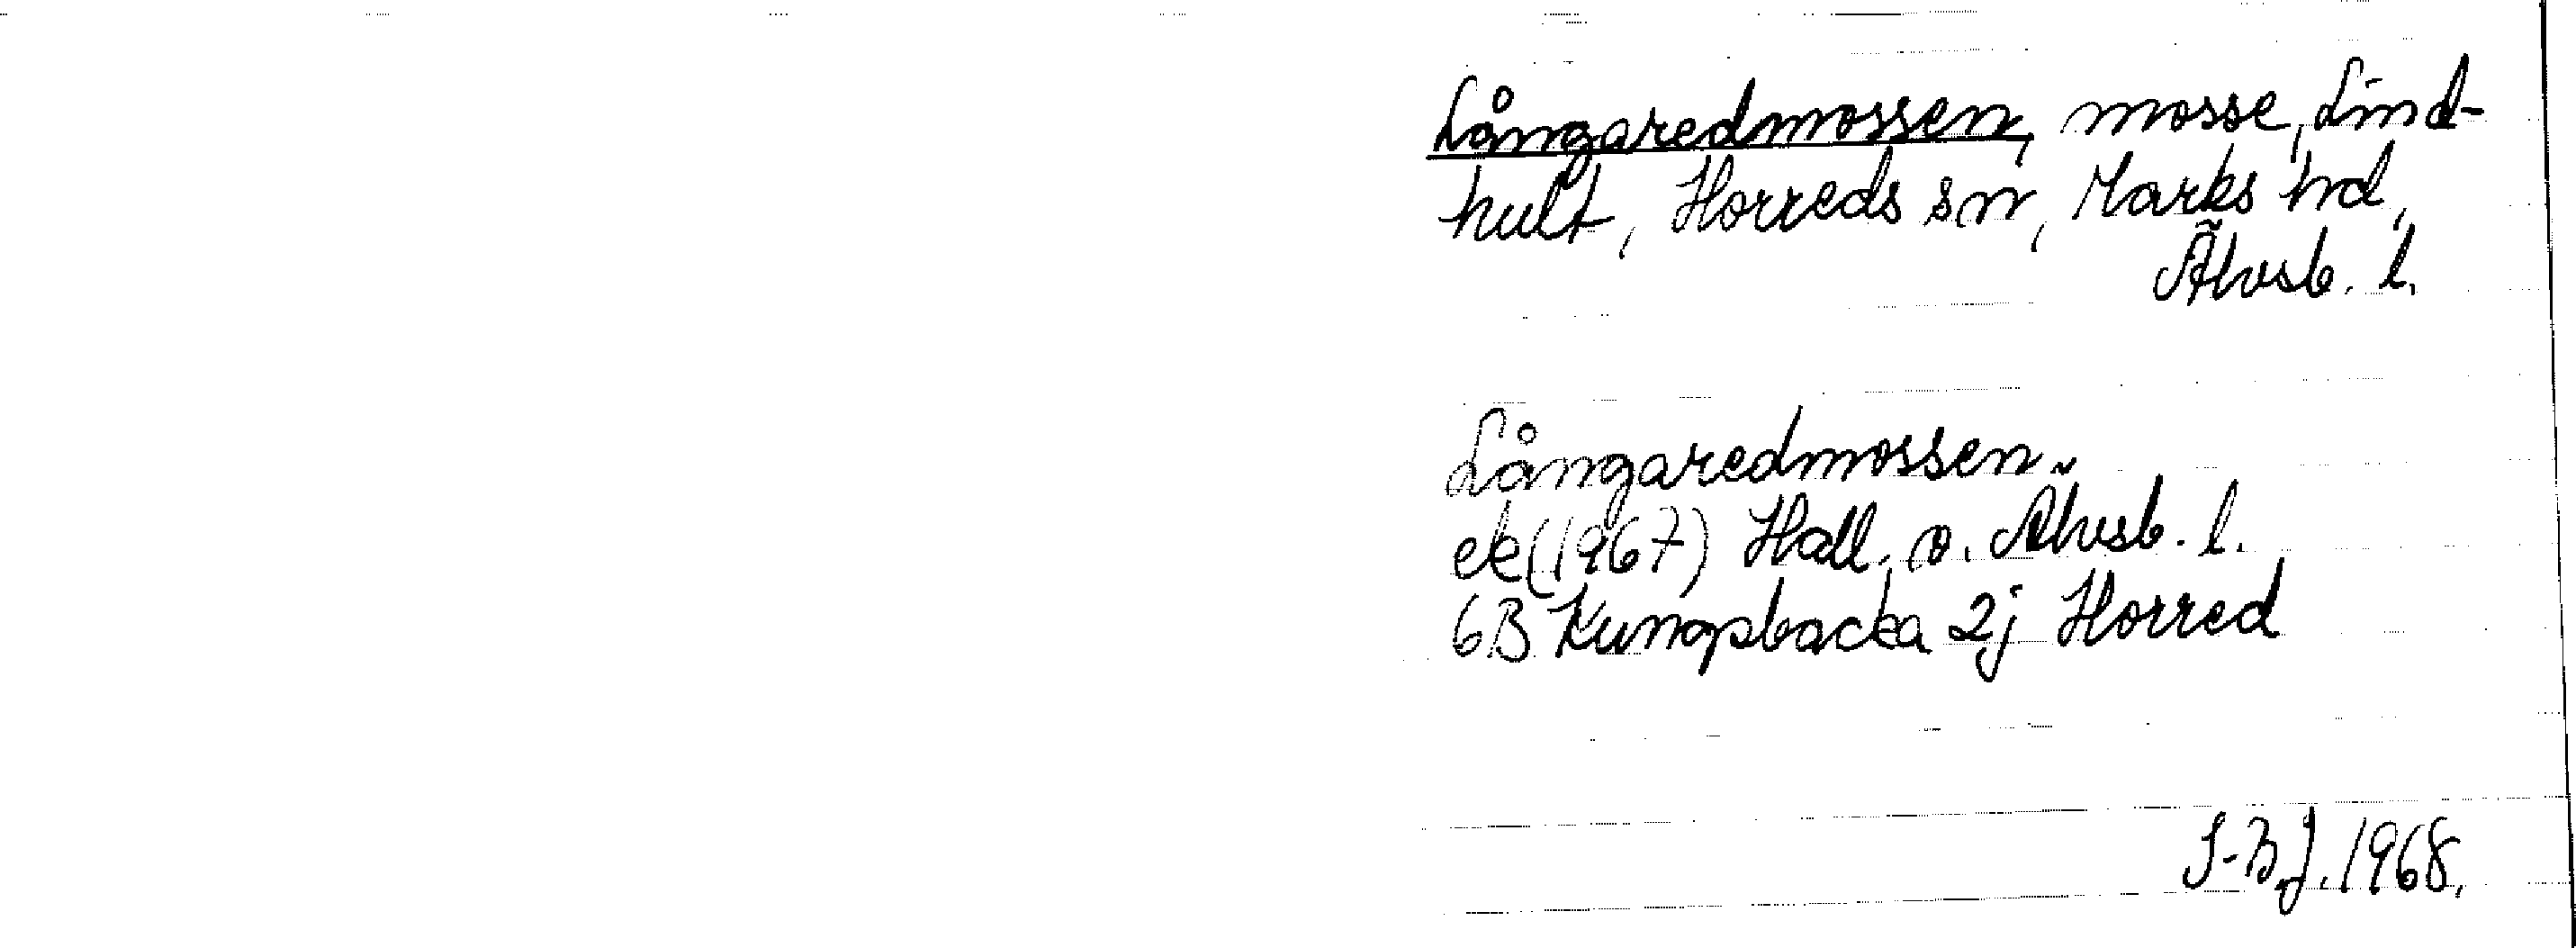 Långaredmossen, mosse, Lind-
hult, Horreds sn, Marks hd,
Älvsb. l.
Långaredmossen
ek (1967) Hall. o. Älvsb. l.
6B Kungsbacka 2j Horred
I-B.J. 1968.